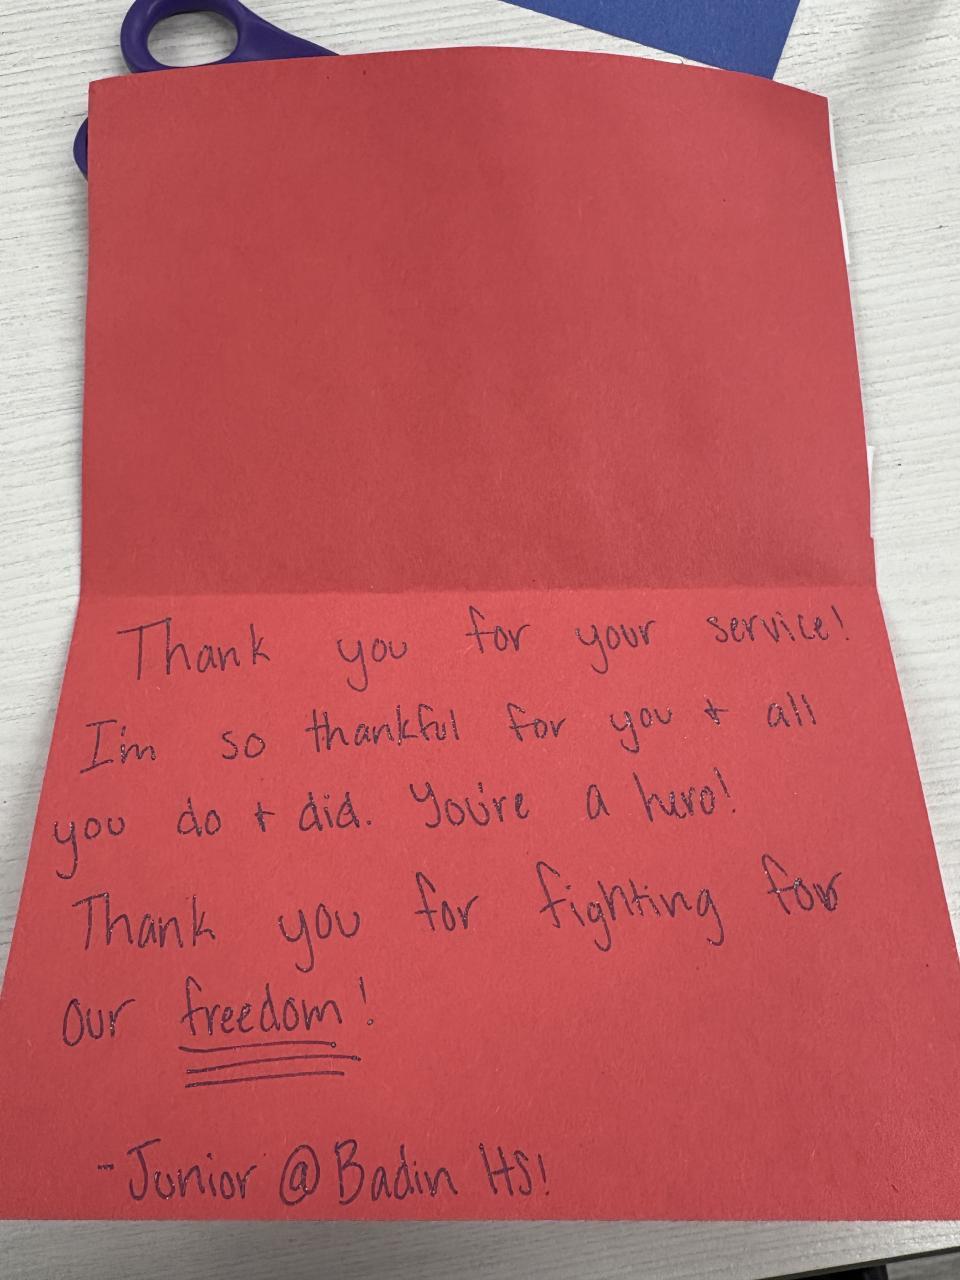 Thank you for your service!
I'm so thankful for you + all
you do + did. You're a hero!
Thank you for fighting for
our freedom!
-Junior @ Badin HS!